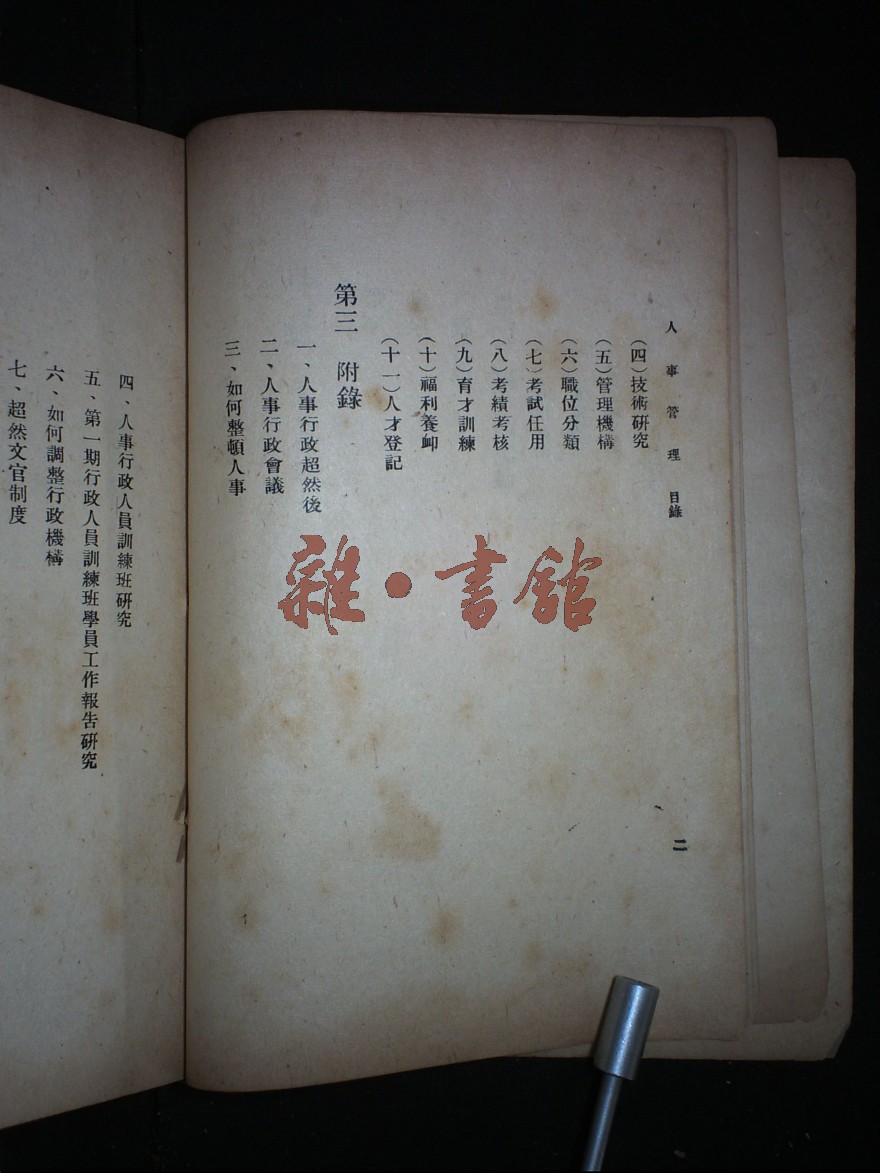 人事管理 目錄
二
(四)技術研究
(五)管理機構
(六)職位分類
(七)考試任用
(八)考績考核
(九)育才訓練
(十)福利養卹
(十一)人才登記
第三 附錄
一、人事行政超然後
二、人事行政會議
三、如何整頓人事
四、人事行政人員訓練班研究
五、第一期行政人員訓練班學員工作報告研究
六、如何調整行政機構
七、超然文官制度
雜·書館